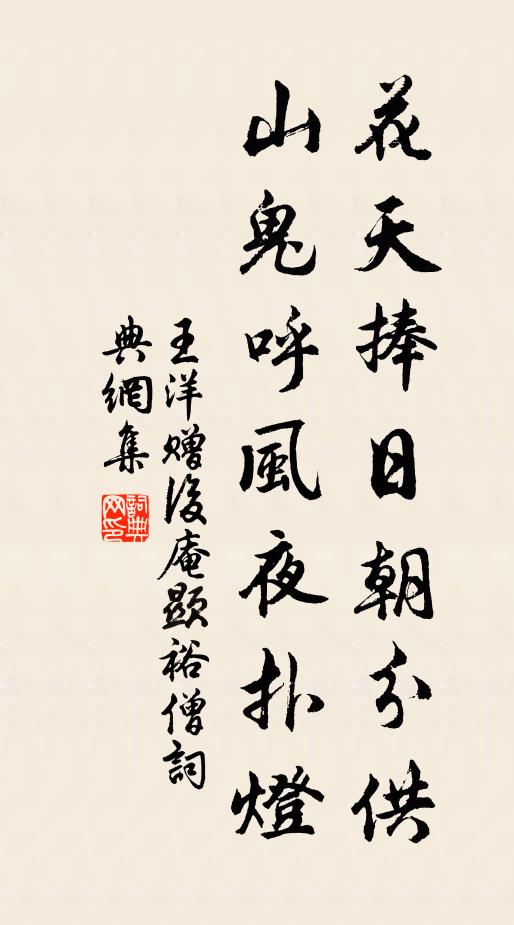 花天捧日朝分供
山鬼呼風夜扑燈
王洋贈後庵顯裕僧詞
典網集
詞典
网印